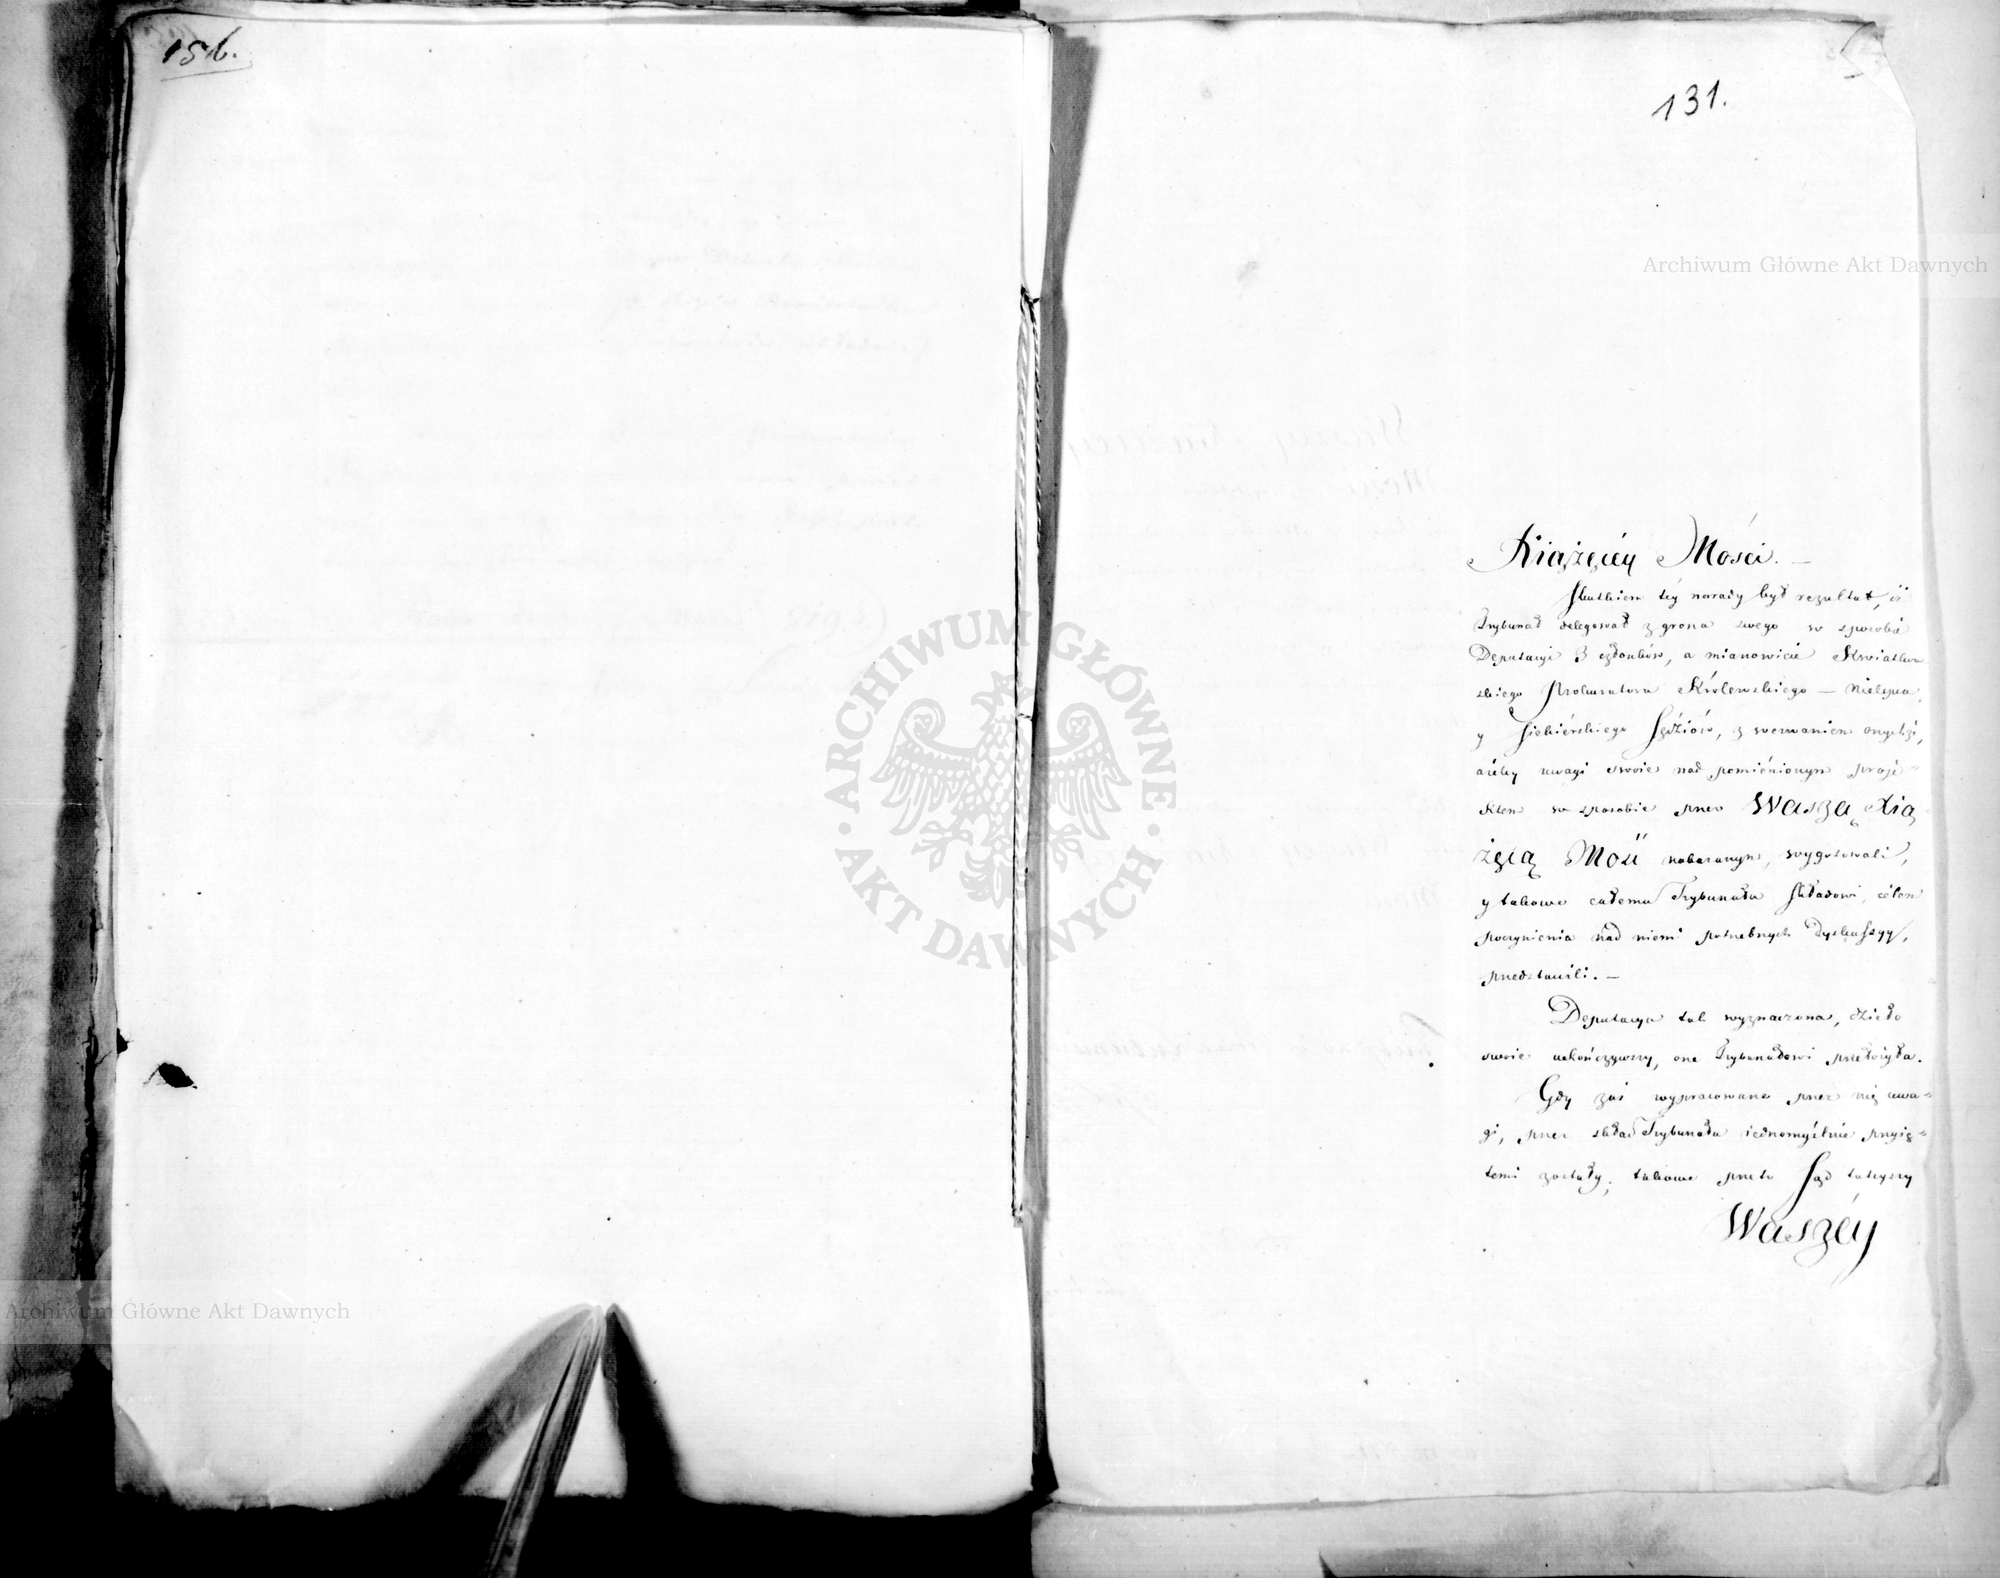 156.
131.
Archiwum Główne Akt Dawnych
Książęcéy Mości. —
Skutkiem téy narady był rezultat, iż
Trybunał delegował z grona swego w sposobie
Deputacyi 3 członków, a mianowicie Kwiatkow
skiego Prokuratora Królewskiego —
y Siekiérskiego Sędziów, z wezwaniem onychże,
ażeby uwagi swoie nad pomiénionym proje-
ktem w sposobie przez Waszą Xią-
żęcą Mość nakazanym, wygotowali,
y takowe całemu Trybunału składowi, célem
poczynienia nad niemi potrzebnych Dyskussyy,
przedstawili. —
Deputacya tak wyznaczona, dzieło
swoie ukończywszy, one Trybunałowi przełożyła.
Gdy zaś wypracowane przez nię uwa-
gi, przez skład Trybunału iednomyślnie przyię-
temi zostały, takowe przeto Sąd tuteyszy
Waszéy
ARCHIWUM GŁÓWNE
AKT DAWNYCH
Archiwum Główne Akt Dawnych